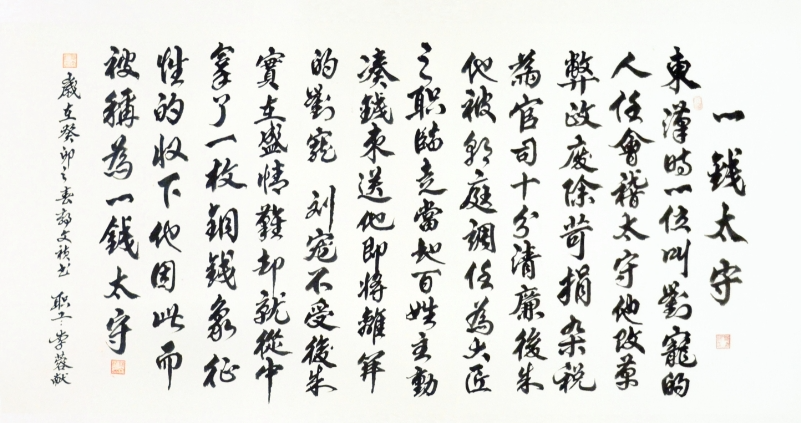 一錢太守
東漢時一位叫劉寵的
人任會稽太守他改革
弊政废除苛捐杂税
為官司十分清廉後来
他被朝庭調任為大匠
之职臨走當地百姓主動
凑錢来送他即将離
的劉寵 刘宠不受後来
實在盛情難却就從中
拿了一枚銅錢象征
性的收下他因此而
被稱為一錢太守
歲在癸卯之春 文禎书 职工:常蓉献